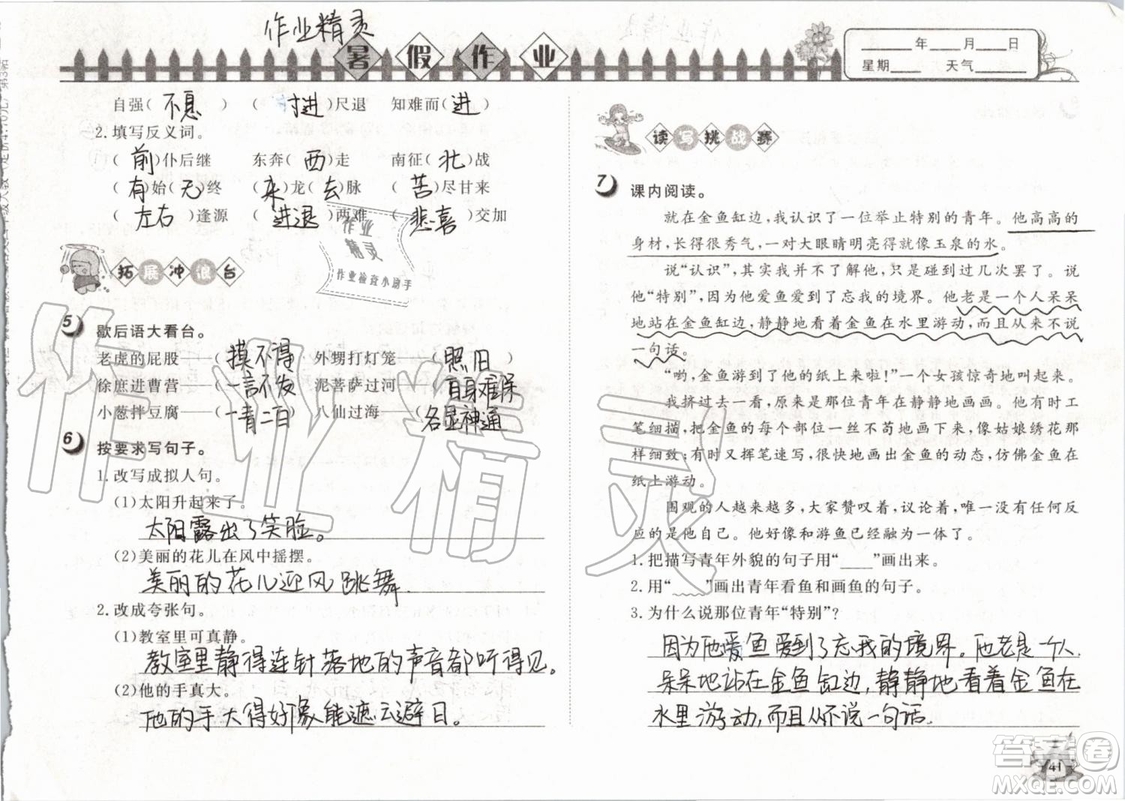 作业精灵
暑假作业
自强(不息) (寸进)尺退 知难而(进)
2.填写反义词。
(前)仆后继 东奔(西)走 南征(北)战
(有)始(无)终 (来)龙(去)脉 (苦)尽甘来
(左右)逢源 (进退)两难 (悲喜)交加
作业
精灵
作业检查小助手
拓展冲浪台
5 歇后语大看台。
老虎的屁股——(摸不得) 外甥打灯笼——(照旧)
徐庶进曹营——(一言不发) 泥菩萨过河——(自身难保)
小葱拌豆腐——(一青二白) 八仙过海——(各显神通)
6 按要求写句子。
1.改写成拟人句。
(1)太阳升起来了。
太阳露出了笑脸。
(2)美丽的花儿在风中摇摆。
美丽的花儿迎风跳舞.
2.改成夸张句。
(1)教室里可真静。
教室里静得连针落地的声音都听得见。
(2)他的手真大。
他的手大得好像能遮云避日。
____年____月____日
星期____ 天气____
读写挑战赛
7 课内阅读。
就在金鱼缸边,我认识了一位举止特别的青年。他高高的
身材,长得很秀气,一对大眼睛明亮得就像玉泉的水。
说“认识”,其实我并不了解他,只是碰到过几次罢了。说
他“特别”,因为他爱鱼到了忘我的境界。他老是一个人呆呆
地站在金鱼缸边,静静地看着金鱼在水里游动,而且从来不说
一句话。
“哟,金鱼游到了他的纸上来啦!”一个女孩惊奇地叫起来。
我挤过去一看,原来那位青年在静静地画画。他有时工
笔细描,把金鱼的每个部位一丝不苟地画下来,像姑娘绣花那
样细致;有时又挥笔速写,很快地画出金鱼的动态,仿佛金鱼在
纸上游动。
围观的人越来越多,大家赞叹着,议论着,唯一没有任何反
应的是他自己。他好像和游鱼已经融为一体了。
1.把描写青年外貌的句子用“____”画出来。
2.用“    ”画出青年看鱼和画鱼的句子。
3.为什么说那位青年“特别”?
因为他爱鱼爱到了忘我的境界。他老是一个人
呆呆地站在金鱼缸边,静静地看着金鱼在
水里游动,而且从不说一句话。
41
作业精灵
答案卷
MXQE.COM